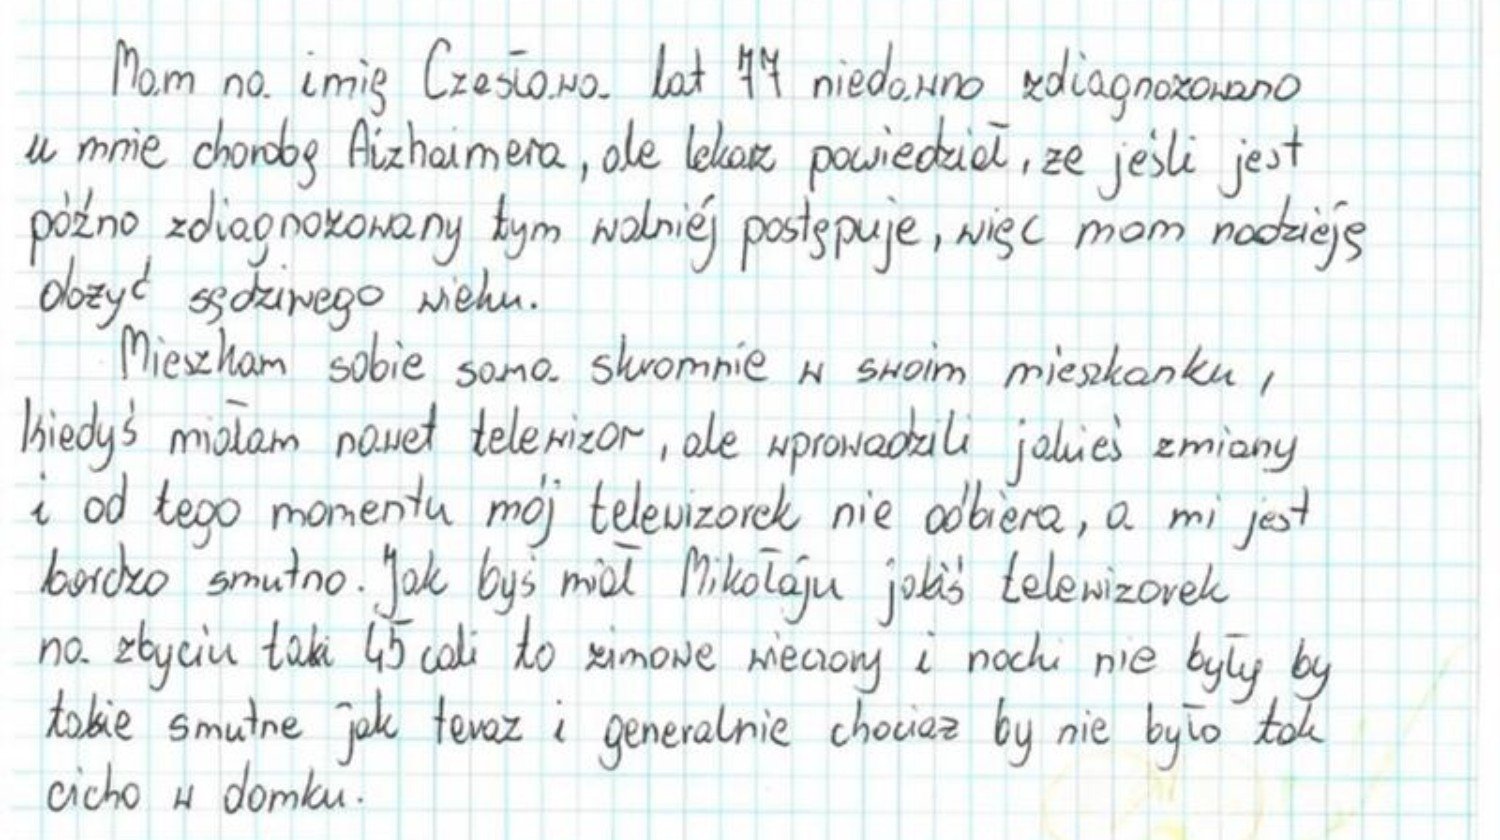 Mam na imię Czesława lat 77 niedawno zdiagnozowano
u mnie chorobę Alzhaimera, ale lekarz powiedział, ze jeśli jest
późno zdiagnozowany tym wolniej postępuje, więc mam nadzieję
dożyć sędziwego wieku.
Mieszkam sobie sama skromnie w swoim mieszkanku,
kiedyś miałam nawet telewizor, ale wprowadzili jakieś zmiany
i od tego momentu mój telewizorek nie odbiera, a mi jest
bardzo smutno. Jak byś miał Mikołaju jakiś telewizorek
na zbyciu taki 45 cali to zimowe wieczory i nocki nie były by
takie smutne jak teraz i generalnie chociaz by nie było tak
cicho w domku.